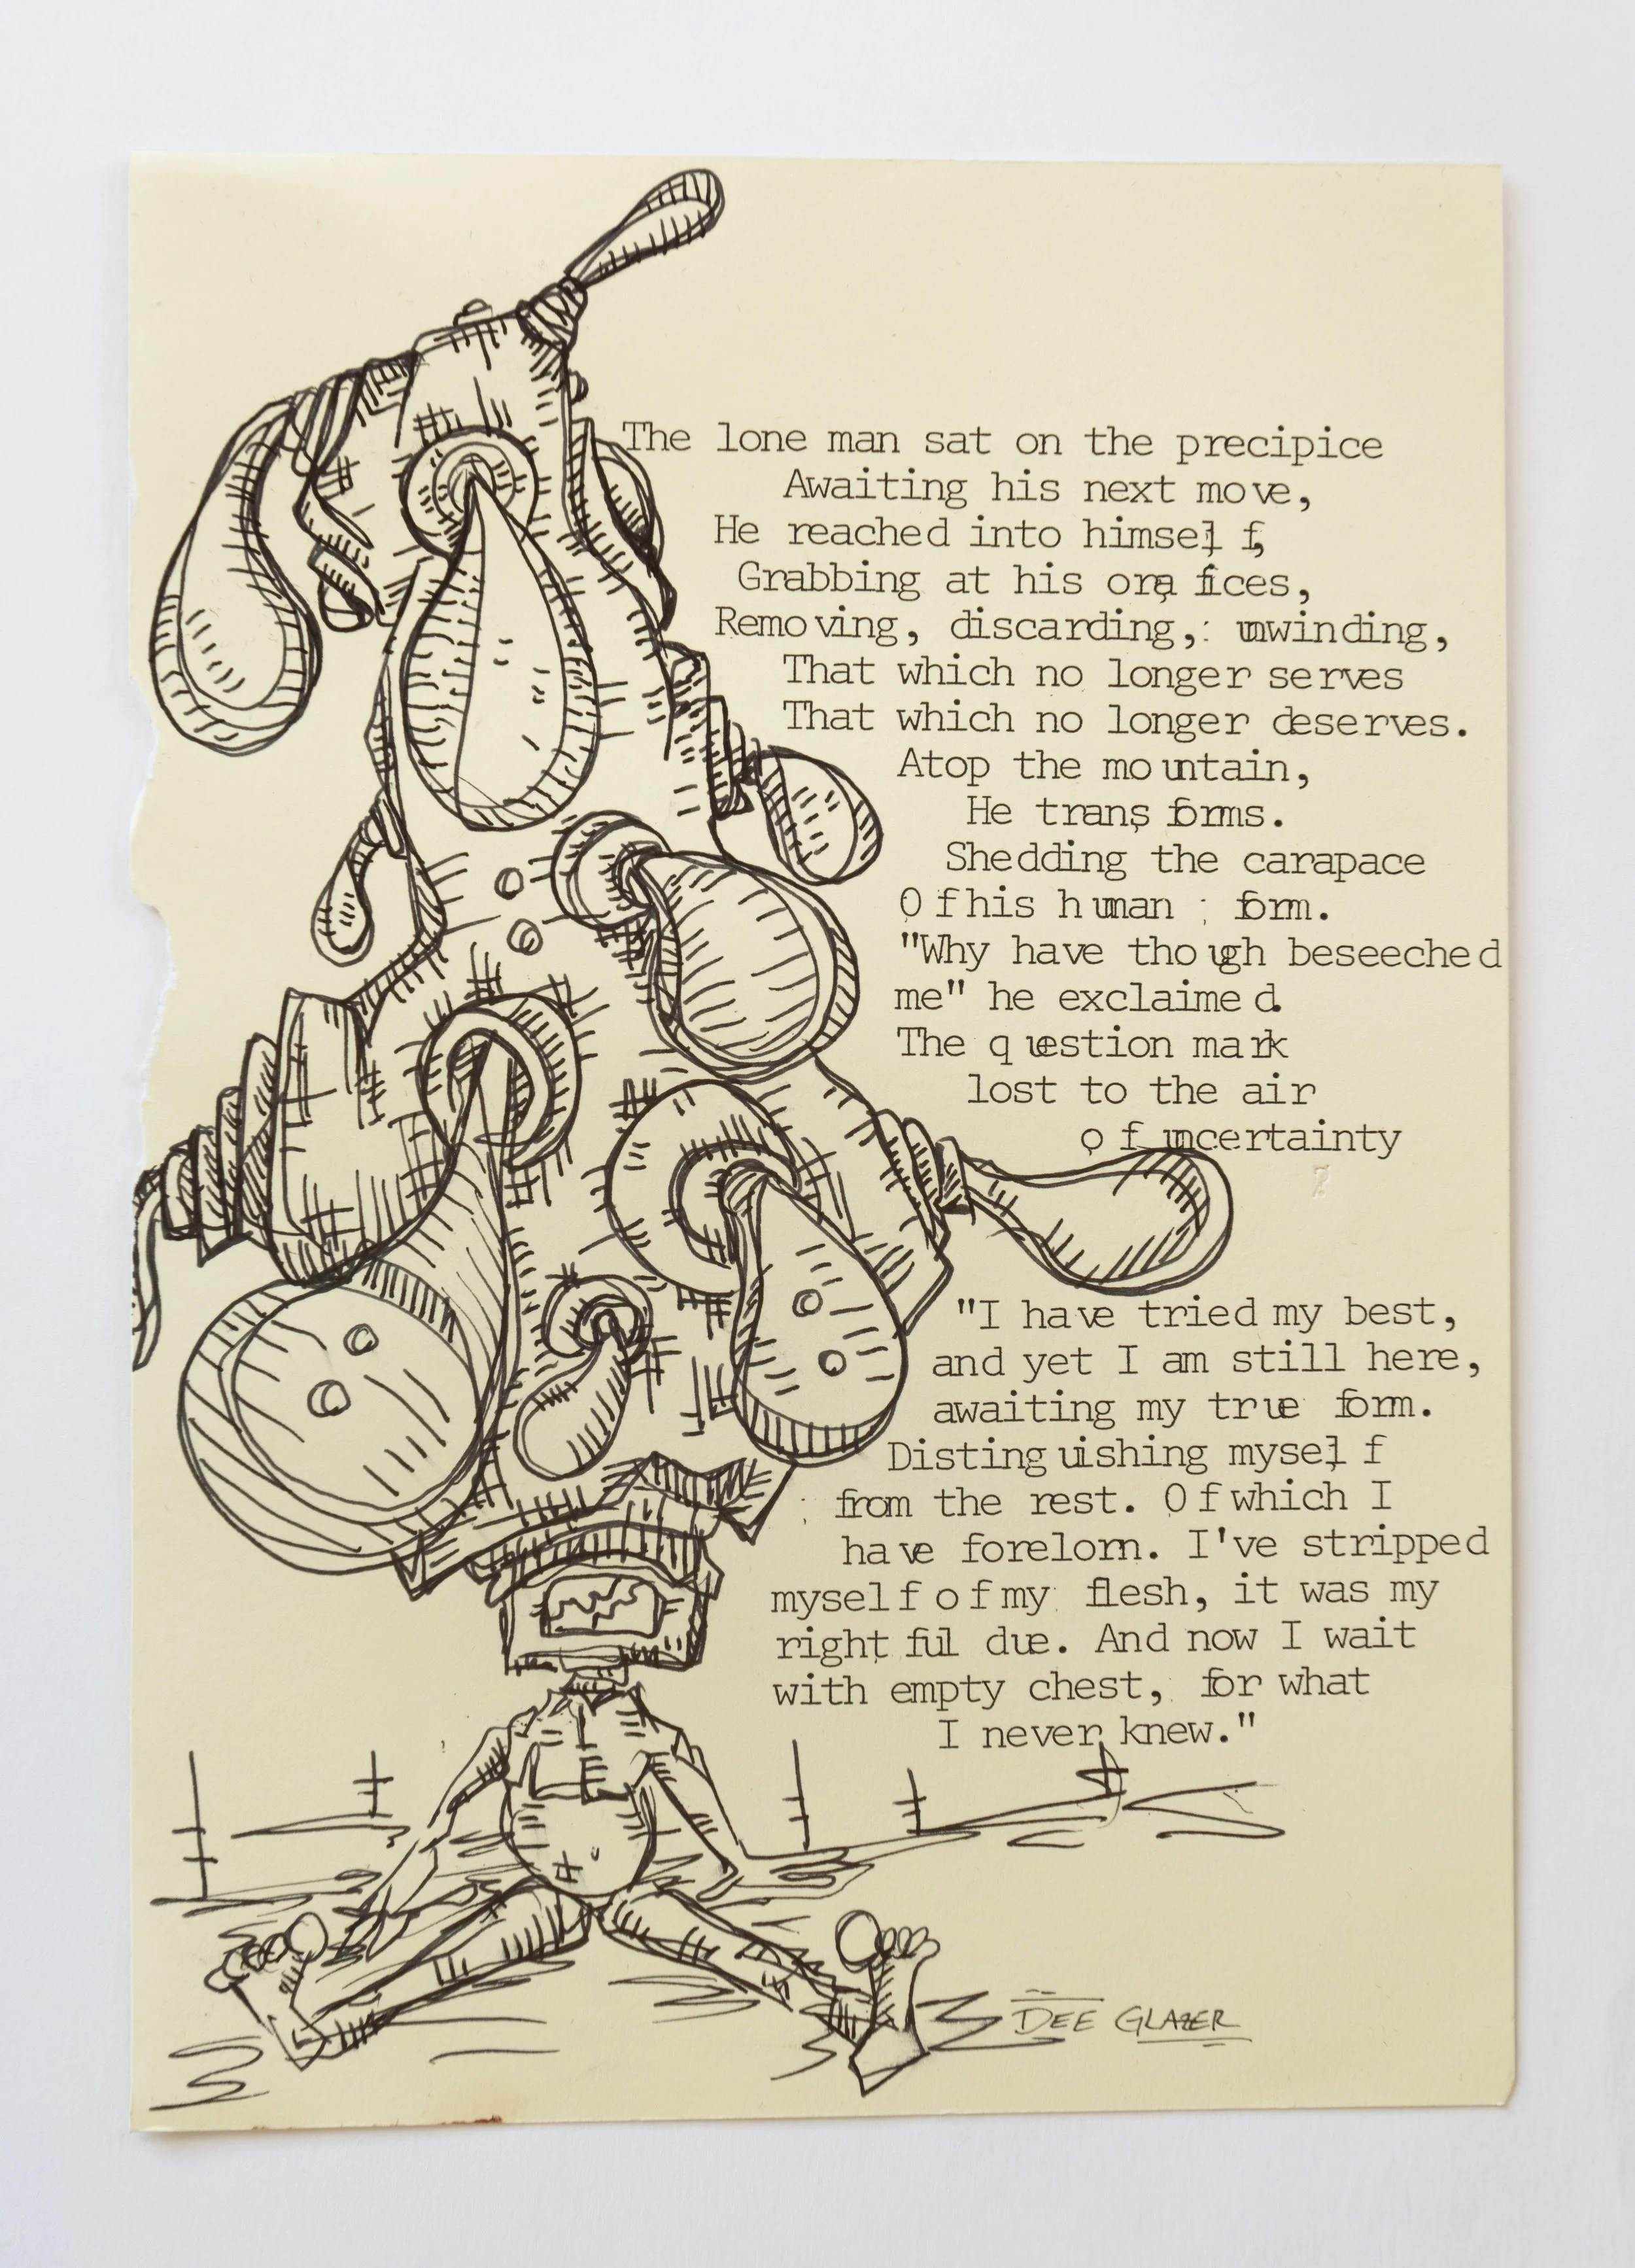 The lone man sat on the precipice
Awaiting his next move,
He reached into himself,
Grabbing at his orafices,
Removing, discarding, unwinding,
That which no longer serves
That which no longer deserves.
Atop the mountain,
He transforms.
Shedding the carapace
Of his human form.
"Why have though beseeched
me" he exclaimed.
The question mark
lost to the air
of uncertainty
?
"I have tried my best,
and yet I am still here,
awaiting my true form.
Distinguishing myself
from the rest. Of which I
have forelorn. I've stripped
myself of my flesh, it was my
rightful due. And now I wait
with empty chest, for what
I never knew."
DEE GLAZER